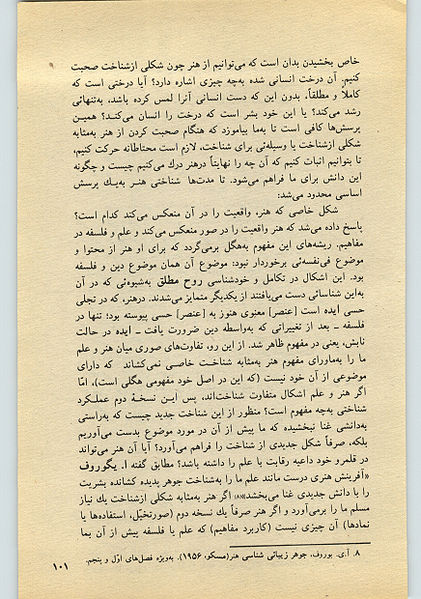 خاص بخشیدن بدان است که می‌توانیم از هنر چون شکلی ازشناخت صحبت
کنیم. آن درخت انسانی شده به‌چه چیزی اشاره دارد؟ آیا درختی است که
کاملاً و مطلقاً، بدون این که دست انسانی آنرا لمس کرده باشد، به‌تنهائی
رشد می‌کند؟ یا این خود بشر است که درخت را انسان می‌کند؟ همین
پرسش‌ها کافی است تا به‌ما بیاموزد که هنگام صحبت کردن از هنر به‌مثابه
شکلی ازشناخت یا وسیله‌ئی برای شناخت، لازم است محتاطانه حرکت کنیم،
تا بتوانیم اثبات کنیم که آن چه را نهایتاً درهنر درك می‌کنیم چیست و چگونه
این دانش برای ما فراهم می‌شود. تا مدت‌ها شناختی هنر به‌یك پرسش
اساسی محدود می‌شد:
شکل خاصی که هنر، واقعیت را در آن منعکس می‌کند کدام است؟
پاسخ داده می‌شد که هنر واقعیت را در صور منعکس می‌کند و علم و فلسفه در
مفاهیم. ریشه‌های این مفهوم به‌هگل برمی‌گردد که برای او هنر از محتوا و
موضوع فی‌نفسه‌ئی برخوردار نبود: موضوع آن همان موضوع دین و فلسفه
بود. این اشکال در تکامل و خودشناسی روح مطلق به‌شیوه‌ئی که در آن
به‌این شناسائی دست می‌یافتند از یکدیگر متمایز می‌شدند. درهنر، که در تجلی
حسی ایده است [عنصر] معنوی هنوز به [عنصر] حسی پیوسته بود؛ تنها در
فلسفه ـ بعد از تغییراتی که به‌واسطه دین ضرورت یافت ـ ایده در حالت
نابش، یعنی در مفهوم ظاهر شد. از این رو، تفاوت‌های صوری میان هنر و علم
ما را به‌ماورای مفهوم هنر به‌مثابه شناخت خاصی نمی‌کشاند که دارای
موضوعی از آن خود نیست (که این در اصل خود مفهومی هگلی است)، امّا
اگر هنر و علم اشکال متفاوت شناخت‌اند، پس این نسخهٔ دوم عملکرد
شناختی به‌چه مفهوم است؟ منظور از این شناخت جدید چیست که به‌راستی
به‌دانشی غنا نبخشیده که ما پیش از آن در مورد موضوع بدست می‌آوریم
بلکه، صرفاً شکل جدیدی از شناخت را فراهم می‌آورد؟ آیا آن هنر می‌تواند
در قلمرو خود داعیه رقابت با علم را داشته باشد؟ مطابق گفته ا. یگوروف
«آفرینش هنری درست مانند علم ما را به‌شناخت جوهر پدیده کشانده بشریت
را با دانش جدیدی غنا می‌بخشد»(۸) اگر هنر به‌مثابه شکلی ازشناخت یك نیاز
مسلم ما را برمی‌آورد و اگر هنر صرفاً یك نسخه دوم (صورتخیّل، استفاده‌ها یا
نمادها) آن چیزی نیست (کاربرد مفاهیم) که علم یا فلسفه پیش از آن بما
۸. آ.ی. بوروف، جوهر زیبائی شناسی هنر(مسکو، ۱۹۵۶). به‌ویژه فصل‌های اوّل و پنجم.
۱۰۱